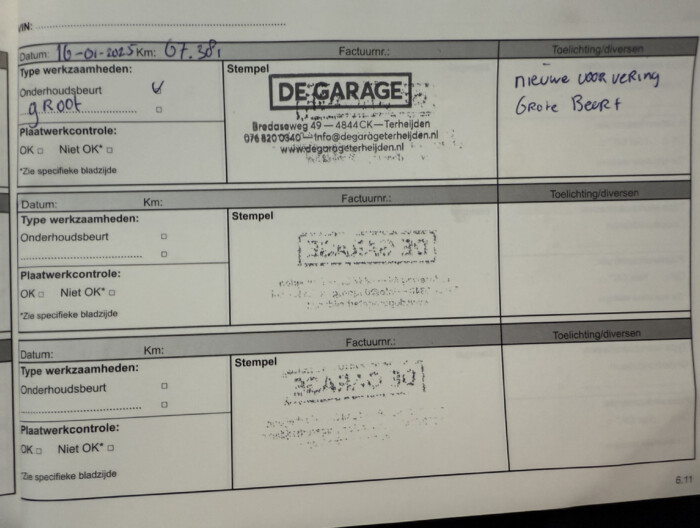 VIN:
Datum: 16-01-2025 Km: 67.381 Factuurnr.: Toelichting/diversen
Type werkzaamheden:
Onderhoudsbeurt
groot
Plaatwerkcontrole:
OK Niet OK*
*Zie specifieke bladzijde
Stempel
DE GARAGE
Bredaseweg 49 — 4844CK — Terheijden
076 820 0340 — info@degarageterheijden.nl
www.degarageterheijden.nl
nieuwe voor vering
Grote Beurt
Datum: Km: Factuurnr.: Toelichting/diversen
Type werkzaamheden:
Onderhoudsbeurt
Plaatwerkcontrole:
OK Niet OK*
*Zie specifieke bladzijde
Stempel
DE GARAGE
Datum: Km: Factuurnr.: Toelichting/diversen
Type werkzaamheden:
Onderhoudsbeurt
Plaatwerkcontrole:
OK Niet OK*
*Zie specifieke bladzijde
Stempel
DE GARAGE
6.11